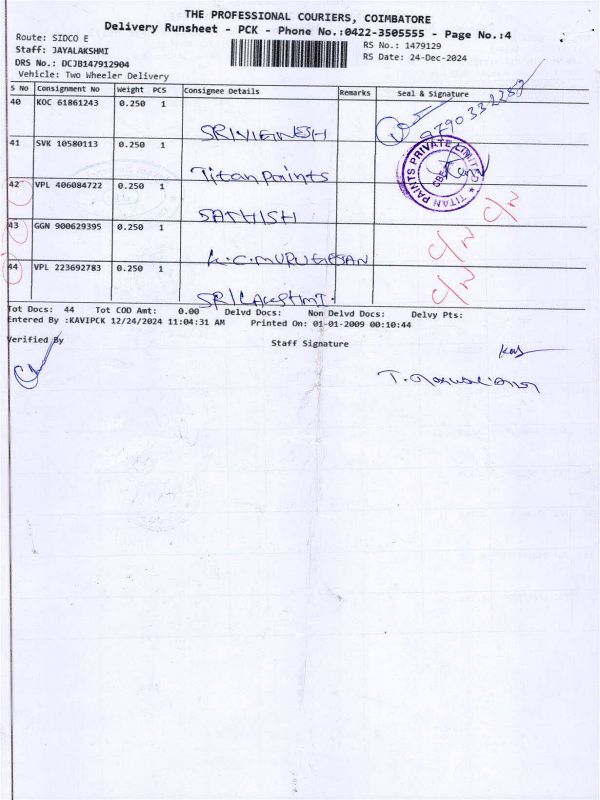 THE PROFESSIONAL COURIERS, COIMBATORE
Delivery Runsheet - PCK - Phone No.:0422-3505555 - Page No.:4
Route: SIDCO E
Staff: JAYALAKSHMI
DRS No.: DCJB147912904
Vehicle: Two Wheeler Delivery
RS No.: 1479129
RS Date: 24-Dec-2024
S No Consignment No Weight PCS Consignee Details Remarks Seal & Signature
40 KOC 61861243 0.250 1
SRIVIGNESH
9790332287
41 SVK 10580113 0.250 1
Titan Paints
TITAN PAINTS PRIVATE LIMITED
CBE
42 VPL 406084722 0.250 1
SATHISH
C/N
43 GGN 900629395 0.250 1
K.C.MURUGESAN
C/N
44 VPL 223692783 0.250 1
SRILAKSHMI.
C/N
Tot Docs: 44 Tot COD Amt: 0.00 Delvd Docs: Non Delvd Docs: Delvy Pts:
Entered By :KAVIPCK 12/24/2024 11:04:31 AM Printed On: 01-01-2009 00:10:44
Verified By
Staff Signature